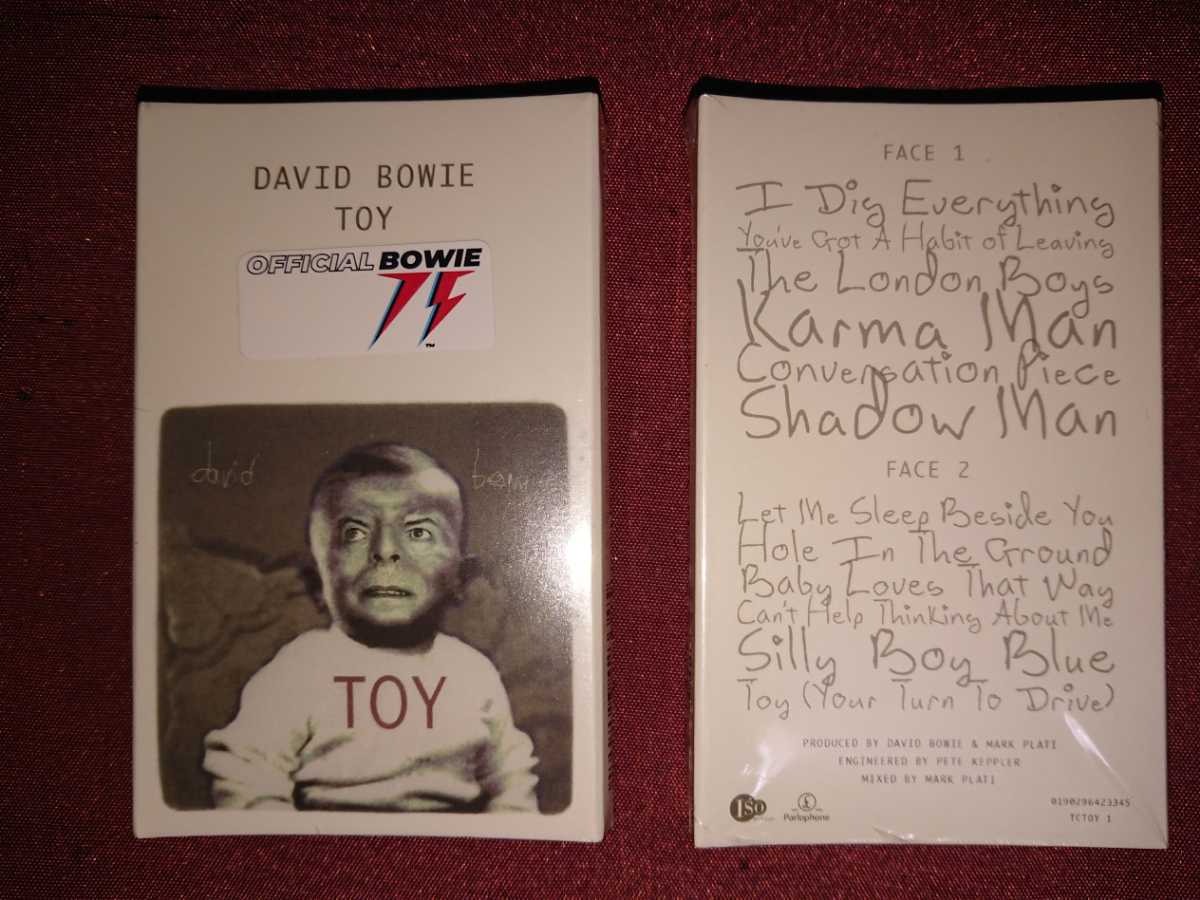 DAVID BOWIE
TOY
OFFICIAL BOWIE
75
™
david
TOY
FACE 1
I Dig Everything
You've Got A Habit of Leaving
The London Boys
Karma Man
Conversation Piece
Shadow Man
FACE 2
Let Me Sleep Beside You
Hole In The Ground
Baby Loves That Way
Can't Help Thinking About Me
Silly Boy Blue
Toy (Your Turn To Drive)
PRODUCED BY DAVID BOWIE & MARK PLATI
ENGINEERED BY PETE KEPPLER
MIXED BY MARK PLATI
ISO
Parlophone
0190296423345
TCTOY 1